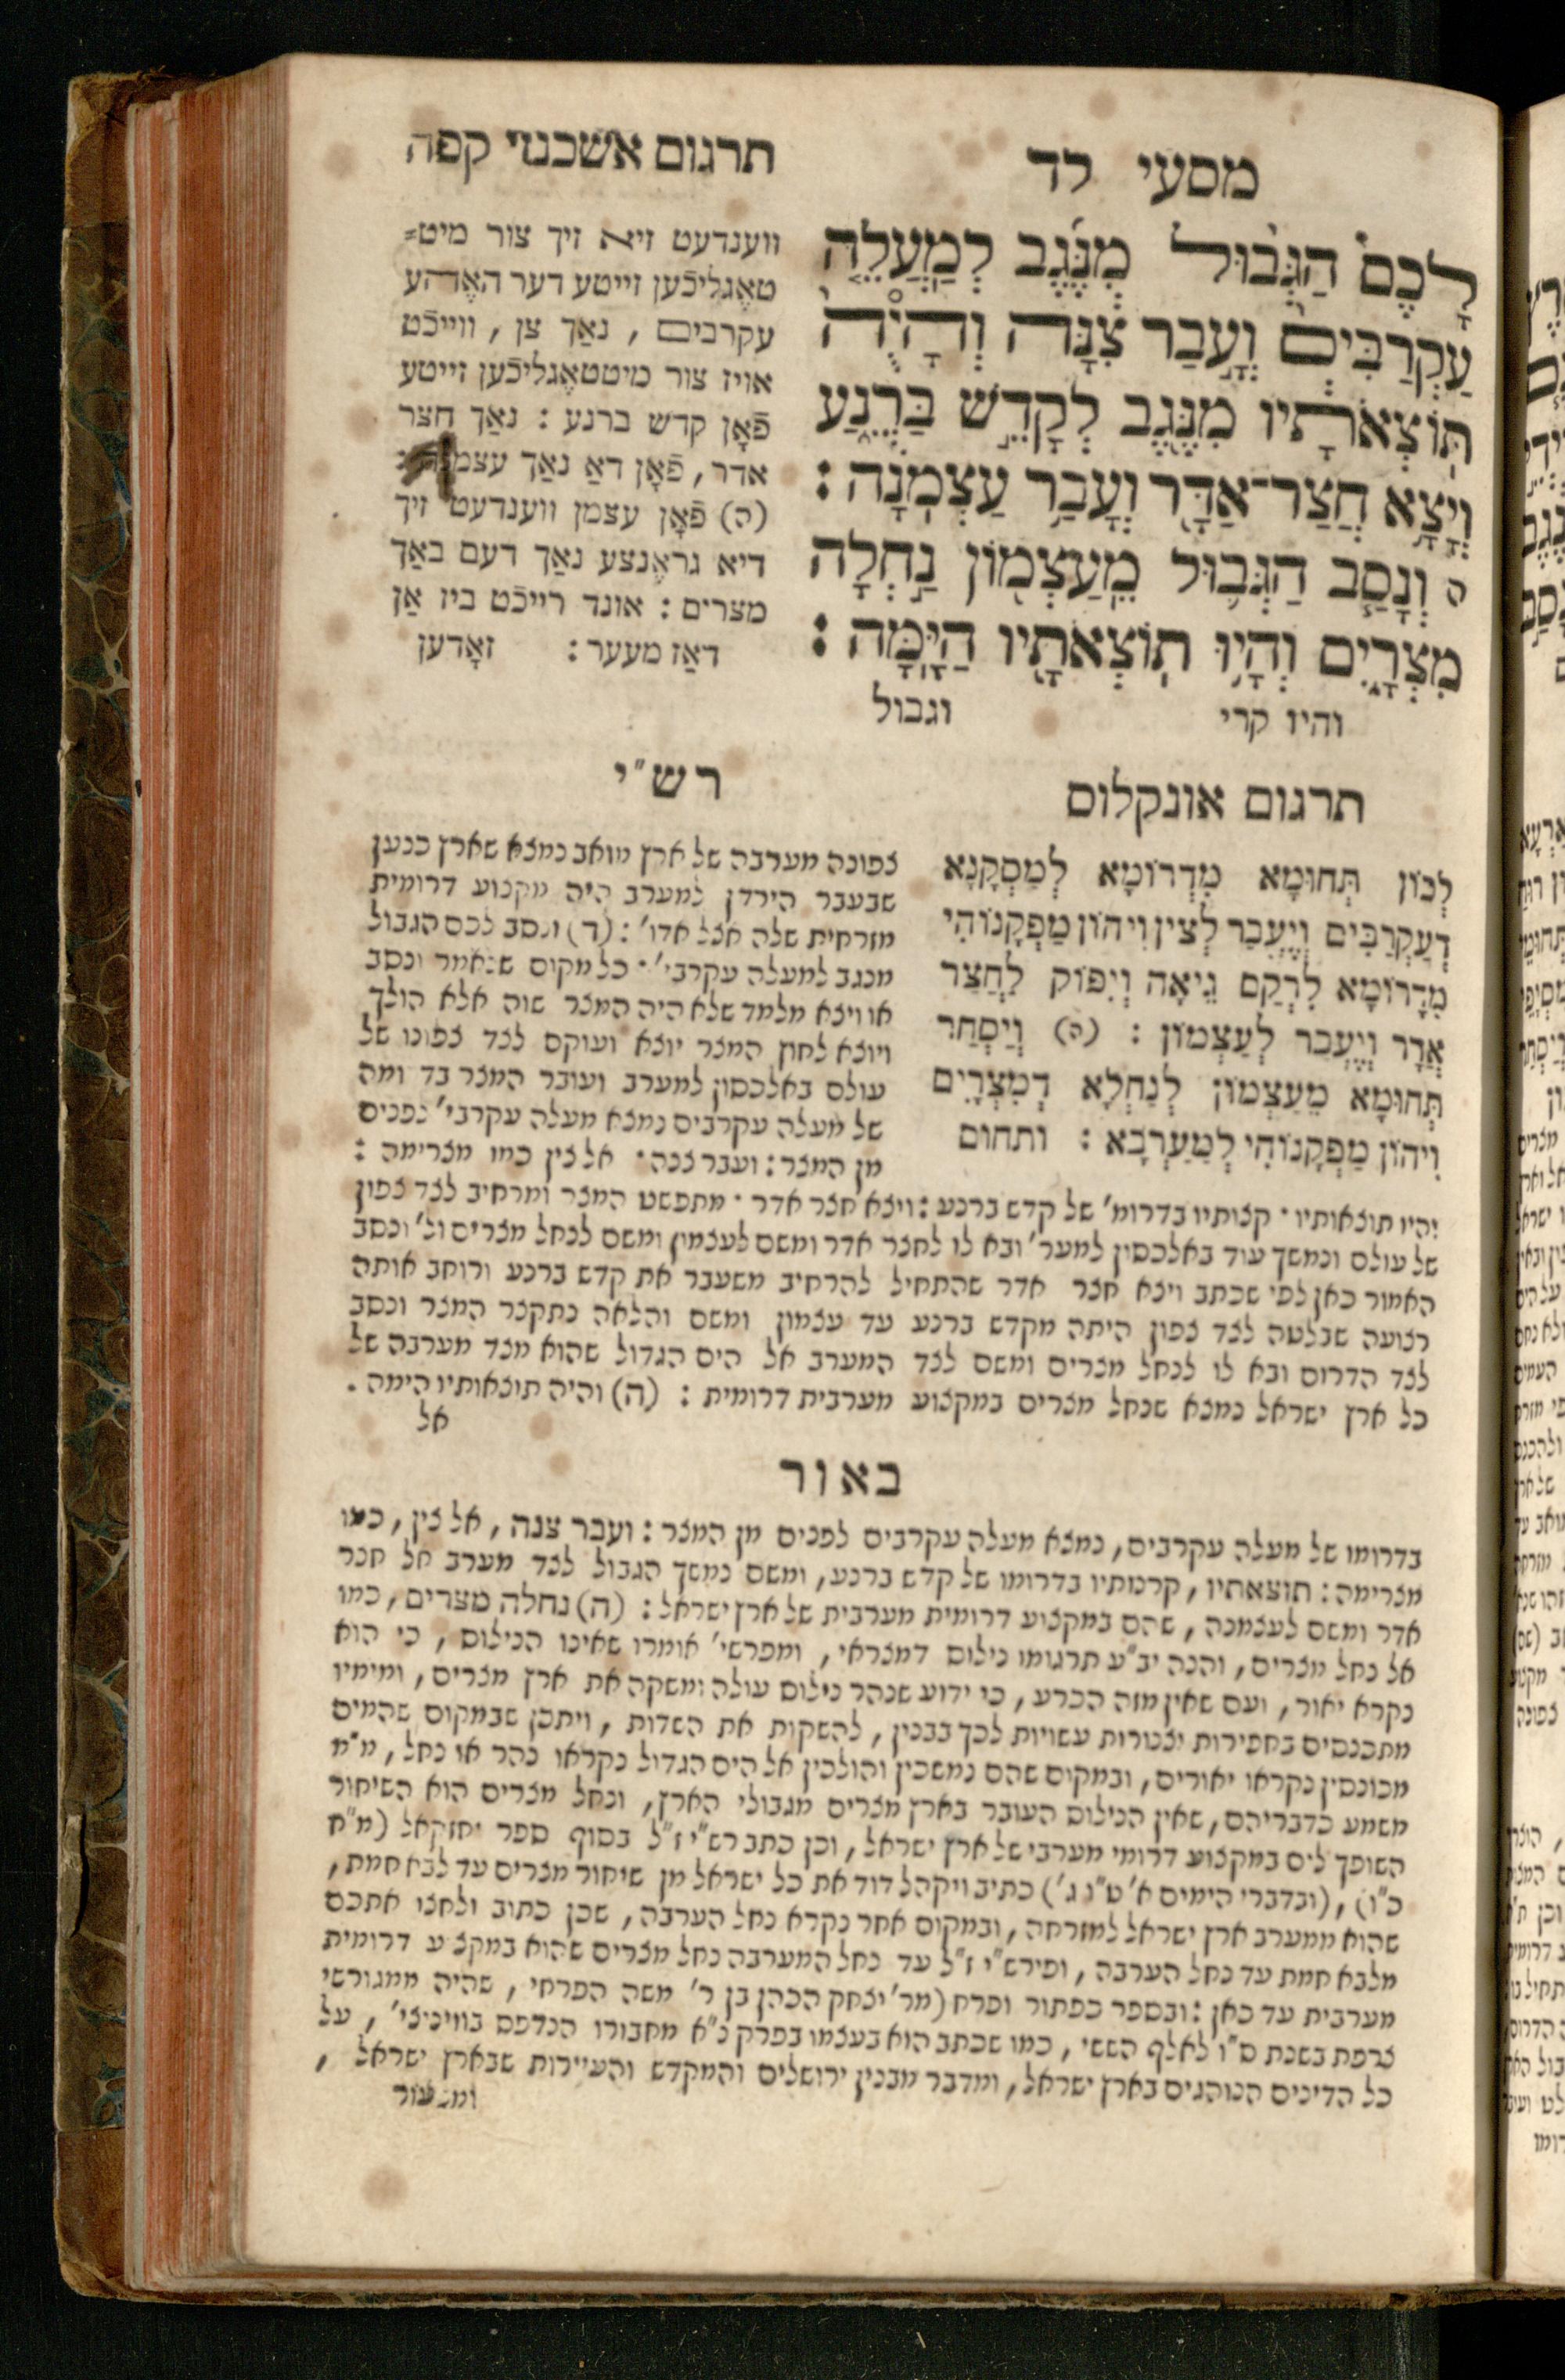 מסעי לד
לָכֶם הַגְּבוּל מִנֶּגֶב לְמַעֲלֵה
עַקְרַבִּים וְעָבַר צִנָּה וְהָיֻה
תּוֹצְאֹתָיו מִנֶּגֶב לְקָדֵשׁ בַּרְנֵעַ
וְיָצָא חֲצַר־אַדָּר וְעָבַר עַצְמֹנָה :
ה וְנָסַב הַגְּבוּל מֵעַצְמוֹן נַחְלָה
מִצְרָיִם וְהָיוּ תוֹצְאֹתָיו הַיָּמָּה :
והיו קרי וגבול
תרגום אשכנזי קפה
ווענדעט זיא זיך צור מיט=
טאֶגליכֿען זייטע דער האֶהע
עקרבים , נאַך צן , ווייכֿט
אויז צור מיטטאֶגליכֿען זייטע
פֿאָן קדש ברנע : נאַך חצר
אדר , פֿאָן דאַ נאַך
(ה) פֿאָן עצמן ווענדעט זיך
דיא גראֶנצע נאַך דעם באַך
מצרים : אונד רייכֿט ביז אַן
דאַז מעער : זאָדען
תרגום אונקלוס
לְכוֹן תְּחוּמָא מִדְרוֹמָא לְמַסְקָנָא
דְעַקְרַבִּים וְיֶעֱבַר לְצִין וִיהוֹן מַפְקָנוֹהִי
מִדָרוֹמָא לִרְקַם גֵיאָה וְיִפּוֹק לַחֲצַר
אַדָר וְיֶעֱבַר לְעַצְמוֹן : (ה) וְיַסְחַר
תְּחוּמָא מֵעַצְמוֹן לְנַחְלָא דְמִצְרָיִם
וִיהוֹן מַפְקָנוֹהִי לְמַעַרְבָא : ותחום
רש"י
צפונה מערבה של ארץ מואב נמצא שארץ כנען
שבעבר הירדן למערב היה מקצוע דרומית
מזרחית שלה אצל אדו' : (ד) ונסב לכם הגבול
מנגב למעלה עקרבי' • כל מקום שנאמר ונסב
או ויצא מלמד שלא היה המצר שוה אלא הולך
ויוצא לחוץ המצר יוצא ועוקם לצד צפונו של
עולם באלכסון למערב ועובר המצר בד ומה
של מעלה עקרבים נמצא מעלה עקרבי' לפנים
מן המצר : ועבר צנה • אל צין כמו מצרימה :
יהיו תוצאותיו • קצותיו בדרומ' של קדש ברנע : ויצא חצר אדר • מתפשט המצר ומרחיב לצד צפון
של עולם ונמשך עוד באלכסון למער' ובא לו לחצר אדר ומשם לעצמון ומשם לנחל מצרים ול' ונסב
האמור כאן לפי שכתב ויצא חצר אדר שהתחיל להרחיב משעבר את קדש ברנע ורוחב אותה
רצועה שבלטה לצד צפון היתה מקדש ברנע עד עצמון ומשם והלאה נתקצר המצר ונסב
לצד הדרום ובא לו לנחל מצרים ומשם לצד המערב אל הים הגדול שהוא מצד מערבה של
כל ארץ ישראל נמצא שנחל מצרים במקצוע מערבית דרומית : (ה) והיה תוצאותיו הימה .
אל
באור
בדרומו של מעלה עקרבים , נמצא מעלה עקרבים לפנים מן המצר : ועבר צנה , אל צין , כמו
מצרימה : תוצאתיו , קרנותיו בדרומו של קדש ברנע , ומשם נמשך הגבול לצד מערב אל חצר
אדר ומשם לעצמנה , שהם במקצוע דרומית מערבית של ארץ ישראל : (ה) נחלה מצרים , כמו
אל נחל מצרים , והנה יב"ע תרגומו נילוס דמצראי , ומפרשי' אומרו שאינו הנילוס , כי הוא
נקרא יאור , ועם שאין מזה הכרע , כי ידוע שנהר נילוס עולה ומשקה את ארץ מצרים , ומימיו
מתכנסים בחפירות וצנורות עשויות לכך בבנין , להשקות את השדות , ויתכן שבמקום שהמים
מכונסין נקראו יאורים , ובמקום שהם נמשכין והולכין אל הים הגדול נקראו נהר או נחל , מ"מ
משמע כדבריהם , שאין הנילוס העובר בארץ מצרים מגבולי הארץ , ונחל מצרים הוא השיחור
השופך לים במקצוע דרומי מערבי של ארץ ישראל , וכן כתב רש"י ז"ל בסוף ספר יחזקאל (מ"ח
כ"ו) , (ובדברי הימים א' ג') כתיב ויקהל דוד את כל ישראל מן שיחור מצרים עד לבא חמת ,
שהוא ממערב ארץ ישראל למזרחה , ובמקום אחר נקרא נחל הערבה , שכן כתוב ולחצו אתכם
מלבא חמת עד נחל הערבה , ופירש"י ז"ל עד נחל המערבה נחל מצרים שהוא במקצוע דרומית
מערבית עד כאן : ובספר כפתור ופרח (מר' יצחק הכהן בן ר' משה הפרחי , שהיה ממגורשי
צרפת בשנת ס"ו לאלף הששי , כמו שכתב הוא בעצמו בפרק נ"א מחבורו הנדפס בוויניצי' , על
כל הדינים הנוהגים בארץ ישראל , ומדבר מבנין ירושלים והמקדש והעיירות שבארץ ישראל ,